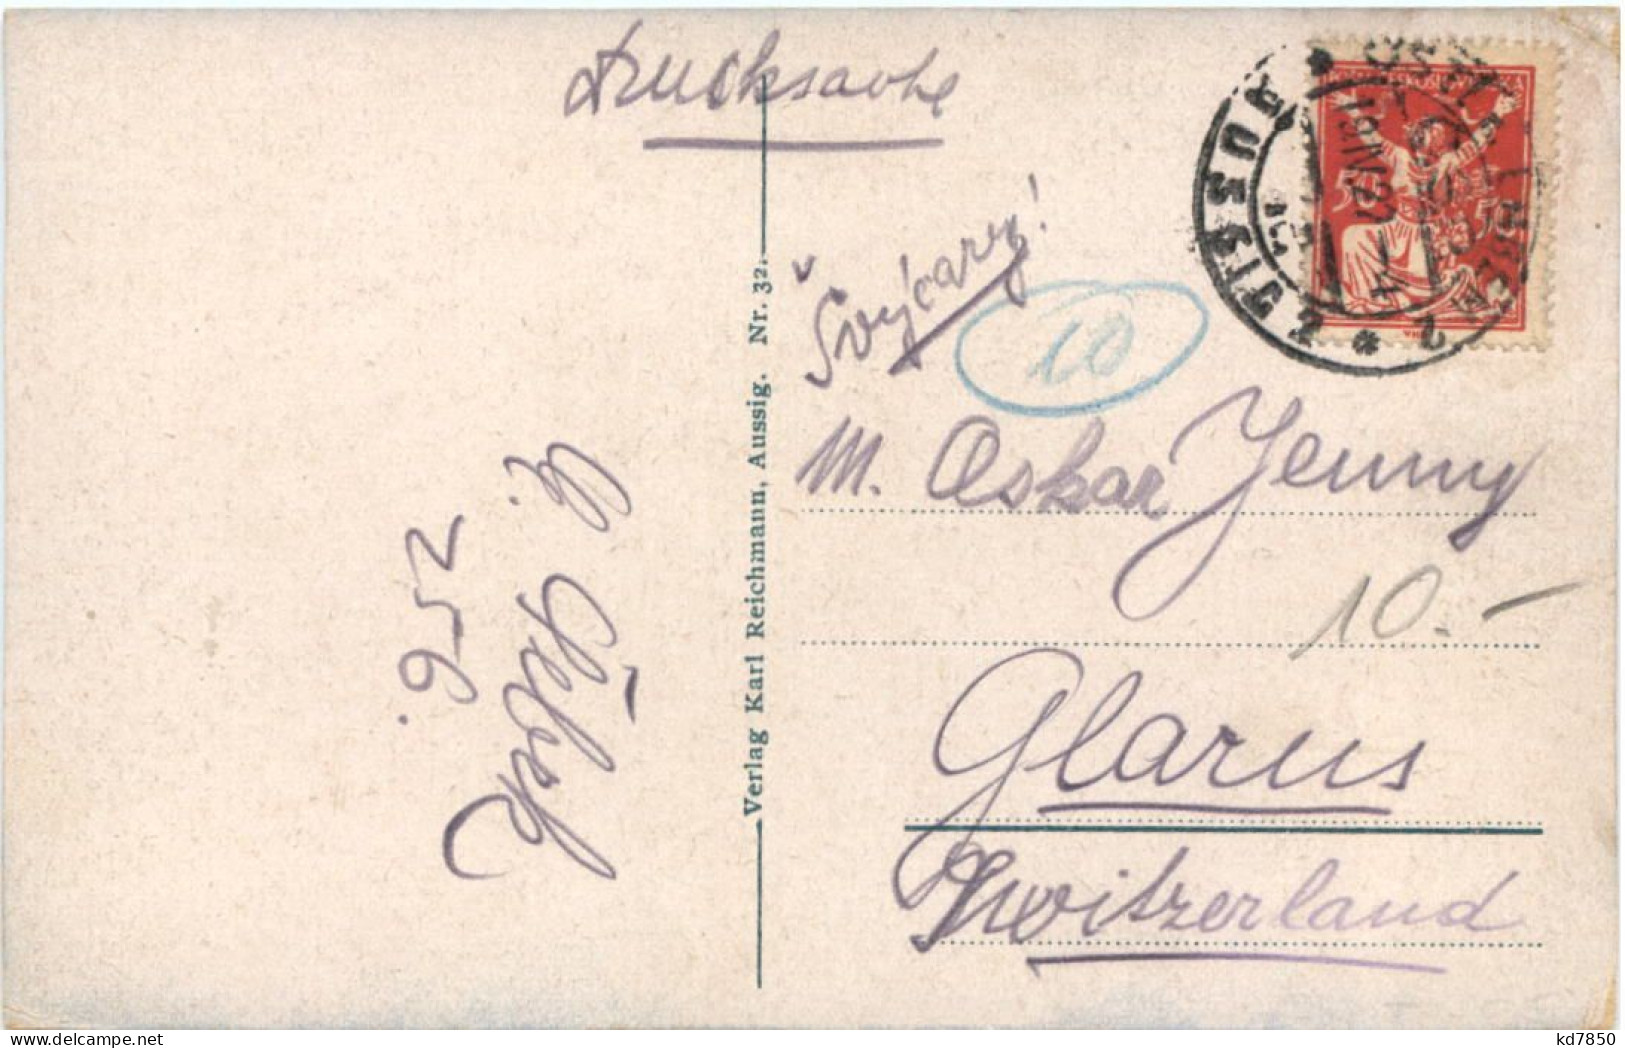 Drucksache
Švýcary!
10
M. Oskar Jenny
10.-
Glarus
Switzerland
Verlag Karl Reichmann, Aussig. Nr. 32.
952
ÚSTÍ
2
AUSSIG
50
kd7850